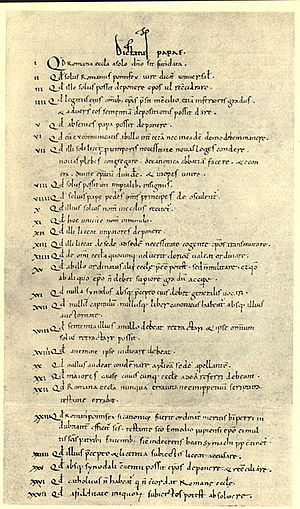 Dictatus papae.
I Qd Romana eccla a solo dno sit fundata.
II Qd solus Romanus pontifex iure dicat' universal'.
III Qd ille solus possit deponere epos vel reconciliare.
IIII Qd legatus ei' omnib' epis presit in concilio etia inferioris gradus
& adversus eos sententia depositionis possit dare.
V Qd absentes papa possit deponere.
VI Qd cu excommunicatis ab illo int' cetera nec in eade domo debem' manere.
VII Qd illi soli licet p temporis necessitate novas leges condere
novas plebes congregare. de canonica abbatia facere. & econ
tra. divite episcopatu dividere. & inopes unire.
VIII Qd solus possit uti imperialib' insigniis.
VIIII Qd solius pape pedes oms principes deosculent'.
X Qd illius solius nom in ecclis recitet'.
XI Qd hoc unicu e nom in mundo.
XII Qd illi liceat imperatores deponere.
XIII Qd illi liceat de sede ad sede necessitate cogente epos transmutare.
XIIII Qd de omni eccla quocunq; voluerit clericu valeat ordinare.
XV Qd ab illo ordinatus alii eccle preesse potest sed non militare. et qd
ab aliquo epo n debet superiore gradu accipe.
XVI Qd nulla synodus absq; precepto ei' debet generalis vocari.
XVII Qd nullu capitulu nullusq; liber canonicus habeat' absq; illius
auctoritate.
XVIII Qd sententia illius a nullo debeat retractari & ipse omnium
solus retractare possit.
XVIIII Qd a nemine ipse iudicari debeat.
XX Qd nullus audeat condemnare apostolica sede apellante.
XXI Qd maiores cause cuiuscunq; eccle ad ea referri debeant.
XXII Qd Romana eccla nunqua erravit nec in perpetuu scriptura
testante errabit.
XXIII Qd Romanus pontifex si canonice fuerit ordinat' meritis bi petri in
dubitanter effici' scs. testante sco Ennodio papiensi epo ei mul
tis scis patrib' faventib' sic in decretis beati symachi pp continet'.
XXIIII Qd illius precepto & licentia subiectis liceat accusare.
XXV Qd absq; synodali conventu possit epos deponere & reconciliare.
XXVI Qd catholicus n habeat' q n concordat Romane eccle.
XXVII Qd a fidelitate iniquoru subiectos potest absolvere.